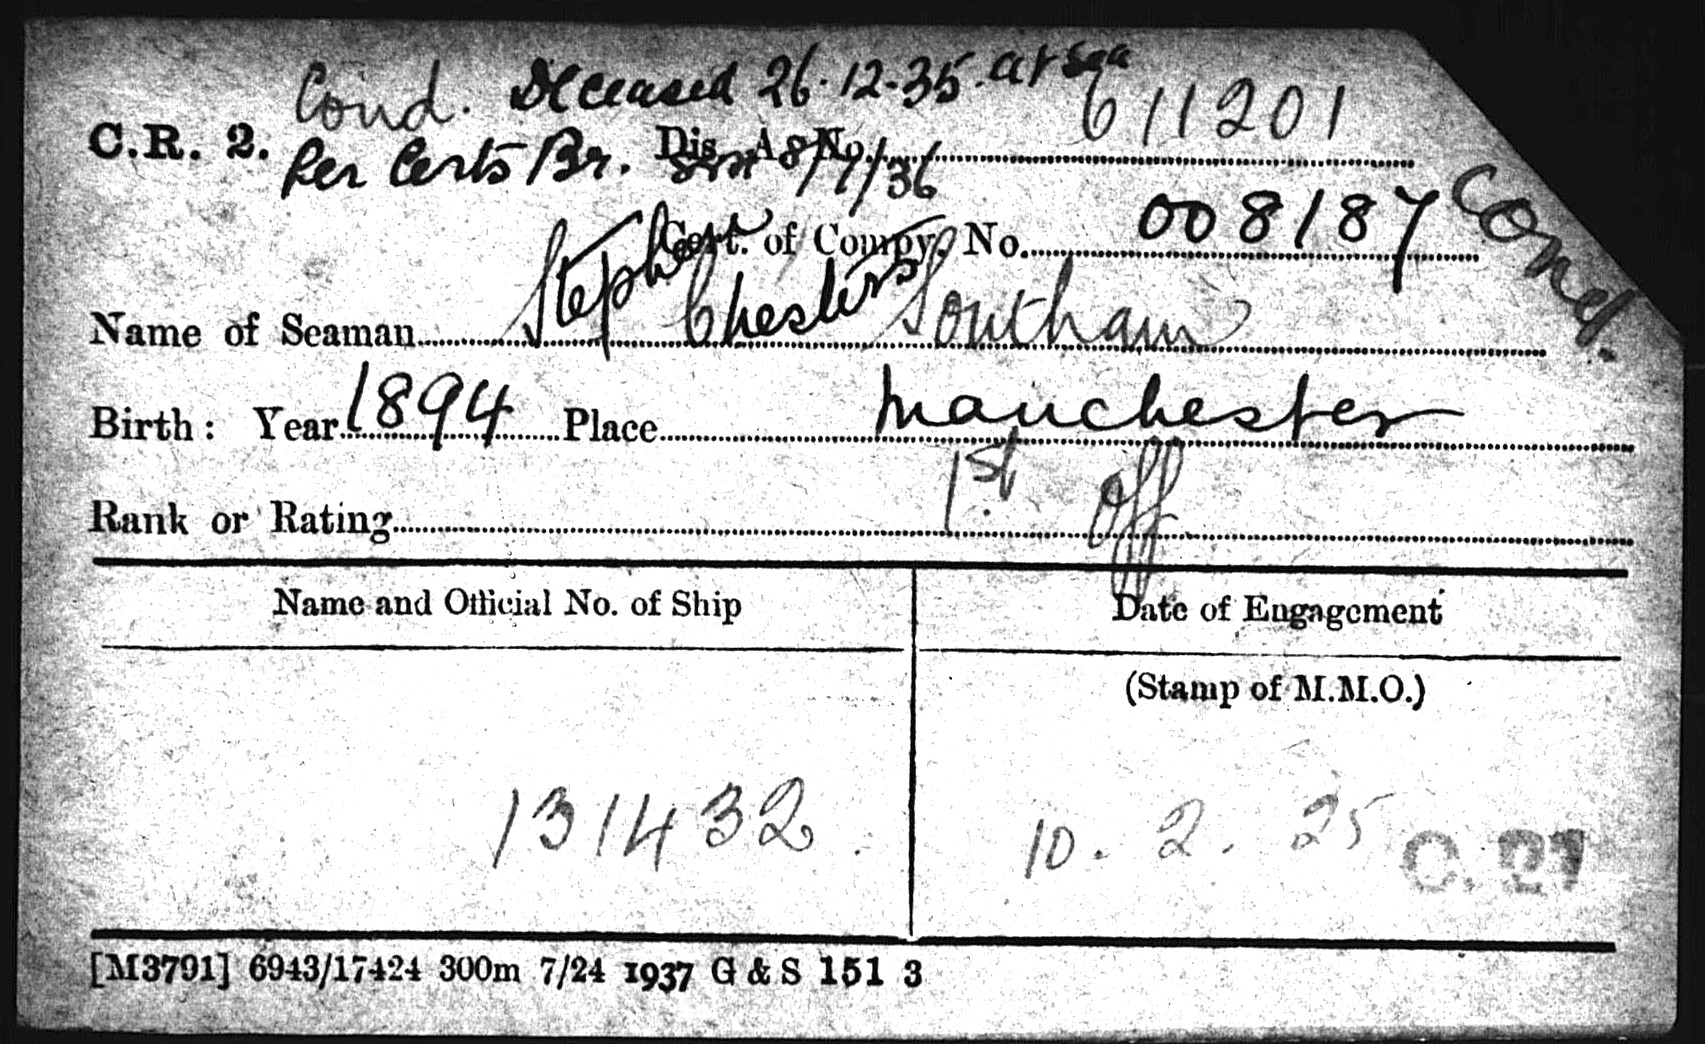 Cond. Deceased 26.12.35. at sea
C.R. 2. Dis. A. No. 611201
Per Certs Br. 8/7/36
Cert. of Compy. No. 008187 Cond.
Name of Seaman Stephen Chesters Southam
Birth: Year 1894 Place Manchester
Rank or Rating 1st. Off
Name and Official No. of Ship Date of Engagement
(Stamp of M.M.O.)
131432. 10.2.25 C. 27
[M3791] 6943/17424 300m 7/24 1937 G & S 151 3